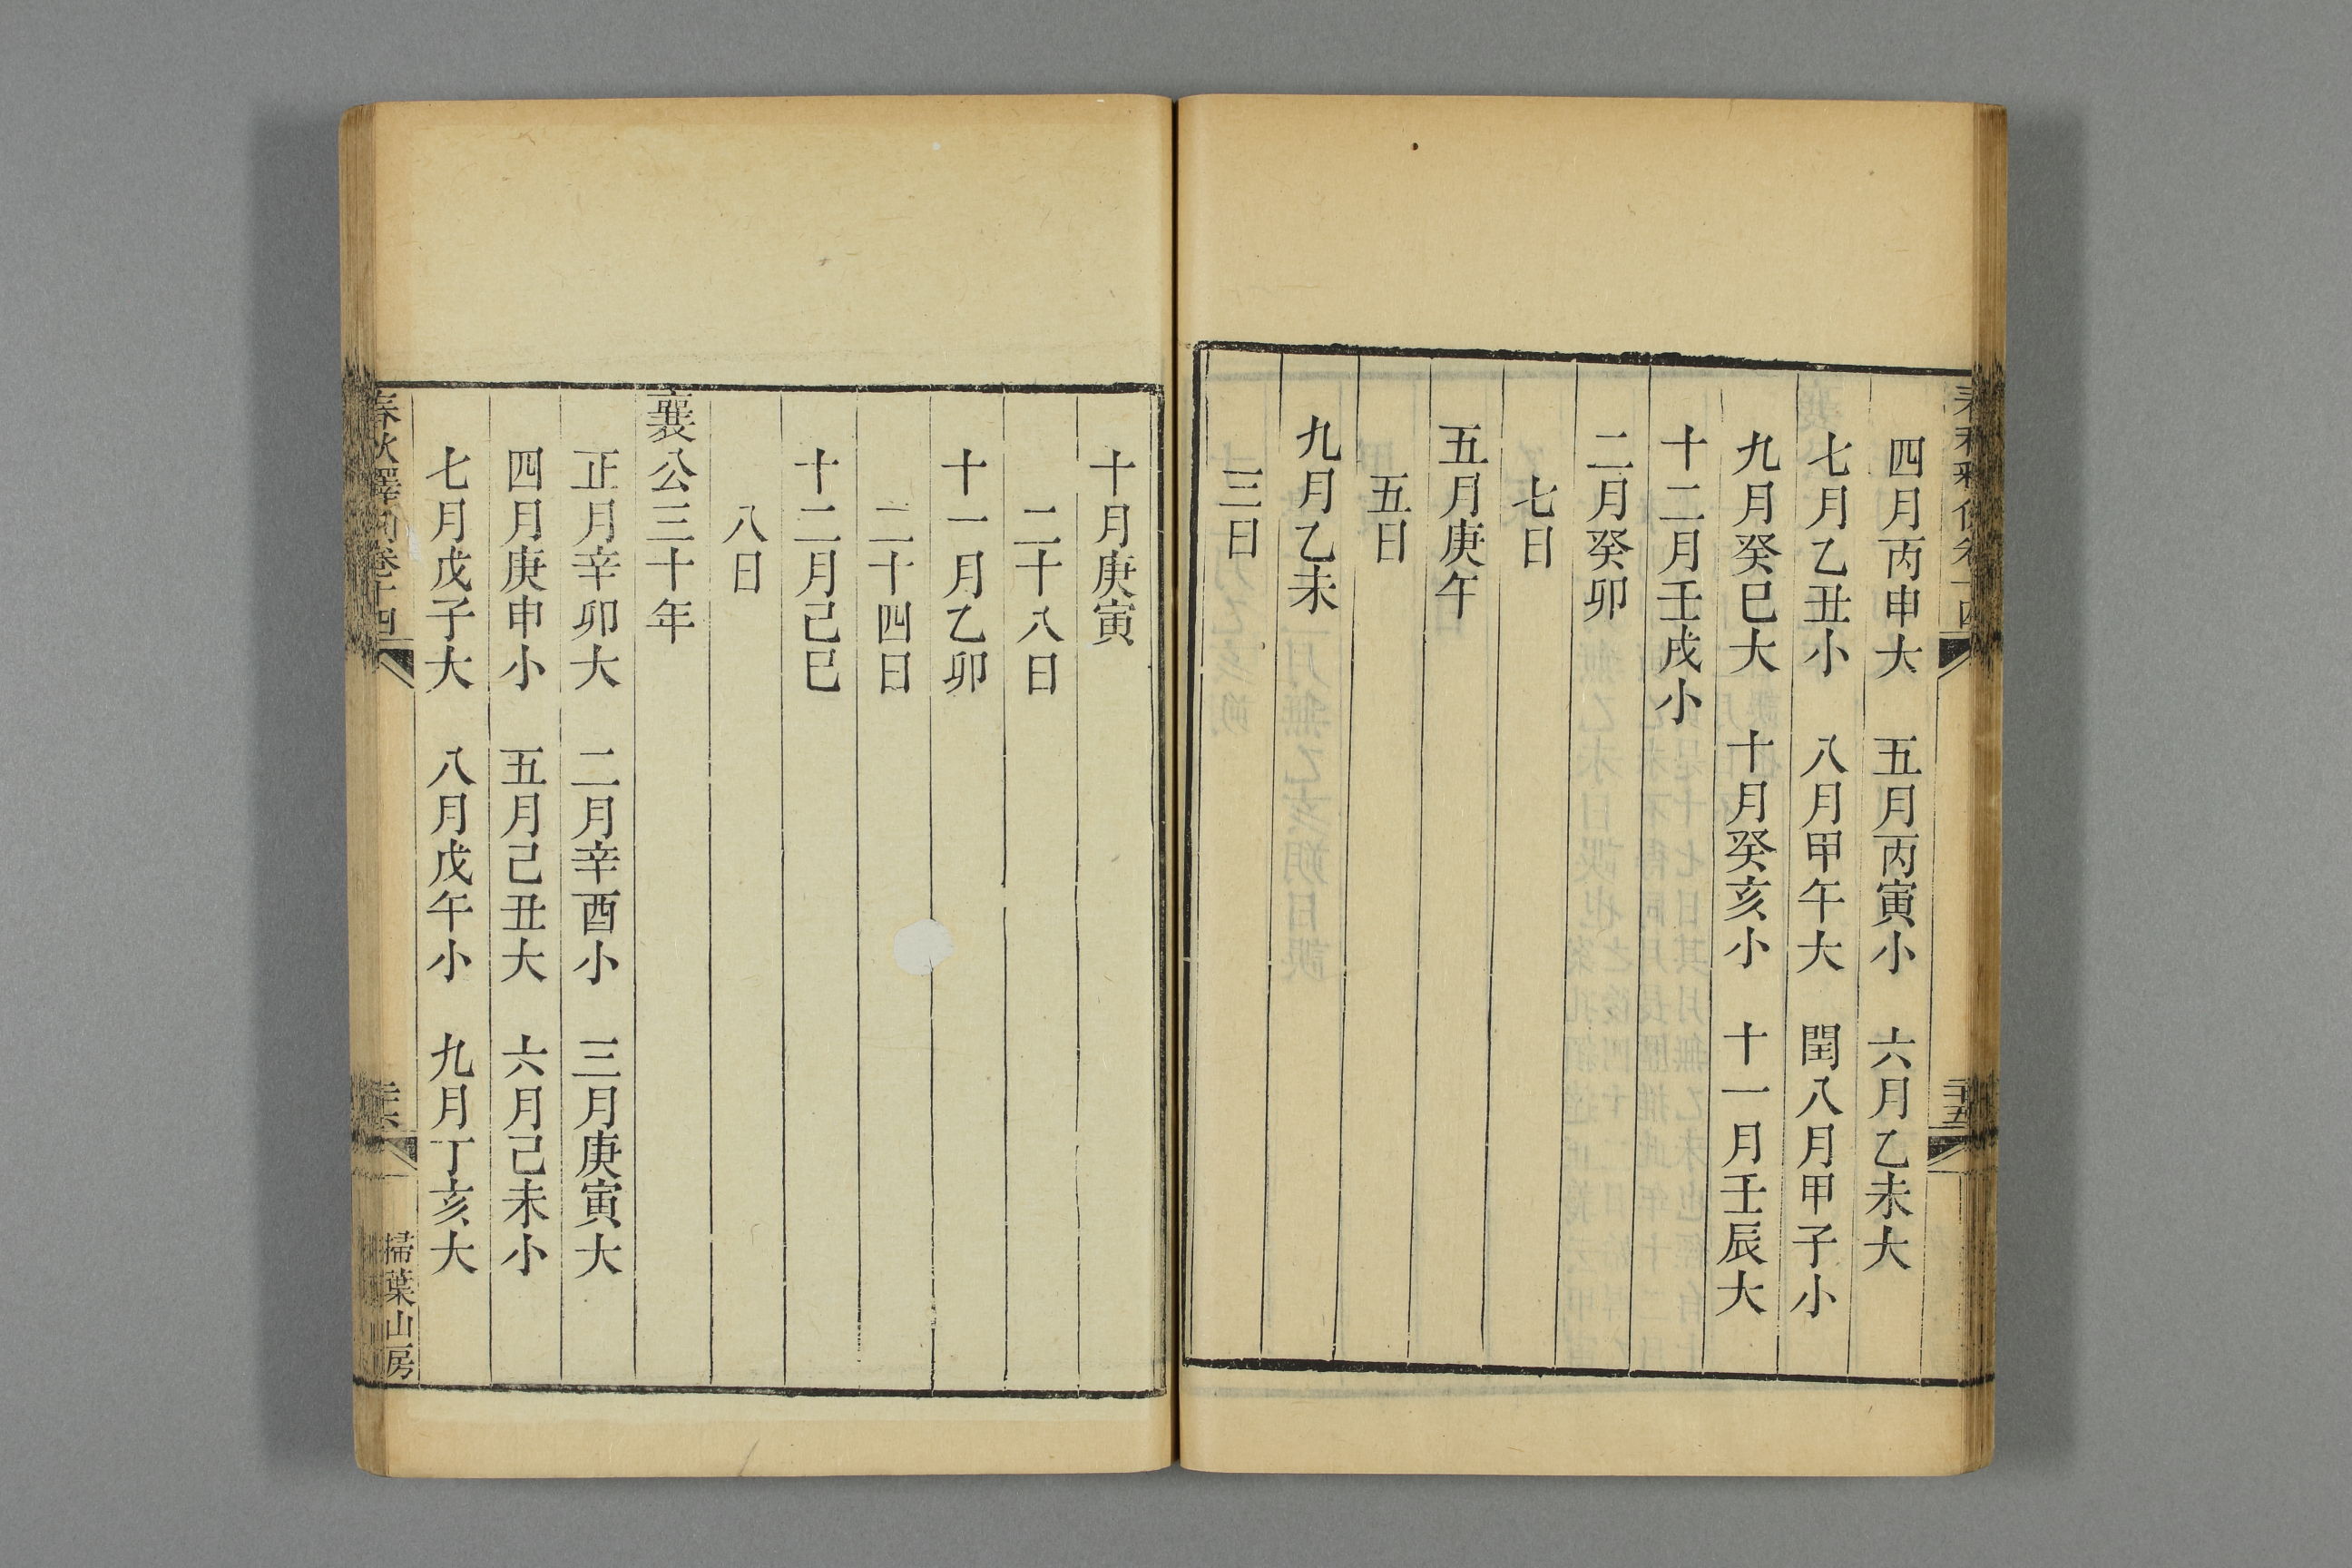 四月丙申大　五月丙寅小　六月乙未大
七月乙丑小　八月甲午大　閏八月甲子小
九月癸巳大　十月癸亥小　十一月壬辰大
十二月壬戌小
二月癸卯
七日
五月庚午
五日
九月乙未
三日
十月庚寅
二十八日
十一月乙卯
二十四日
十二月己巳
八日
襄公三十年
正月辛卯大　二月辛酉小　三月庚寅大
四月庚申小　五月己丑大　六月己未小
七月戊子大　八月戊午小　九月丁亥大
春秋釋例卷十四
掃葉山房